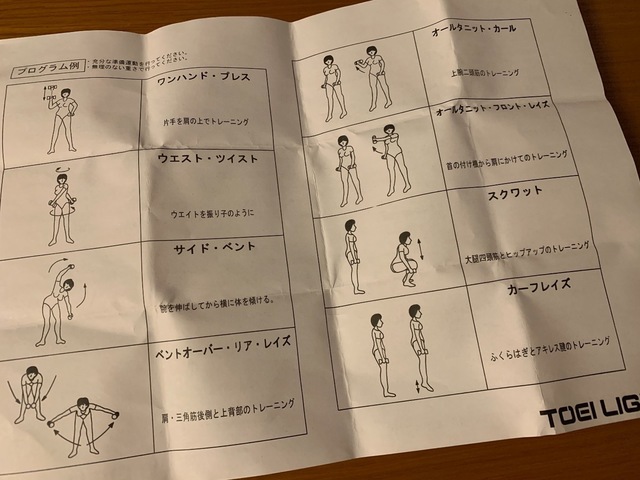 プログラム例
・充分な準備運動を行ってください。
・無理のない重さで行ってください。
ワンハンド・プレス
片手を肩の上でトレーニング
ウエスト・ツイスト
ウエイトを振り子のように
サイド・ベント
腕を伸ばしてから横に体を傾ける。
ベントオーバー・リア・レイズ
肩・三角筋後側と上背部のトレーニング
オールタニット・カール
上腕二頭筋のトレーニング
オールタニット・フロント・レイズ
首の付け根から肩にかけてのトレーニング
スクワット
大腿四頭筋とヒップアップのトレーニング
カーフレイズ
ふくらはぎとアキレス腱のトレーニング
TOEI LIG